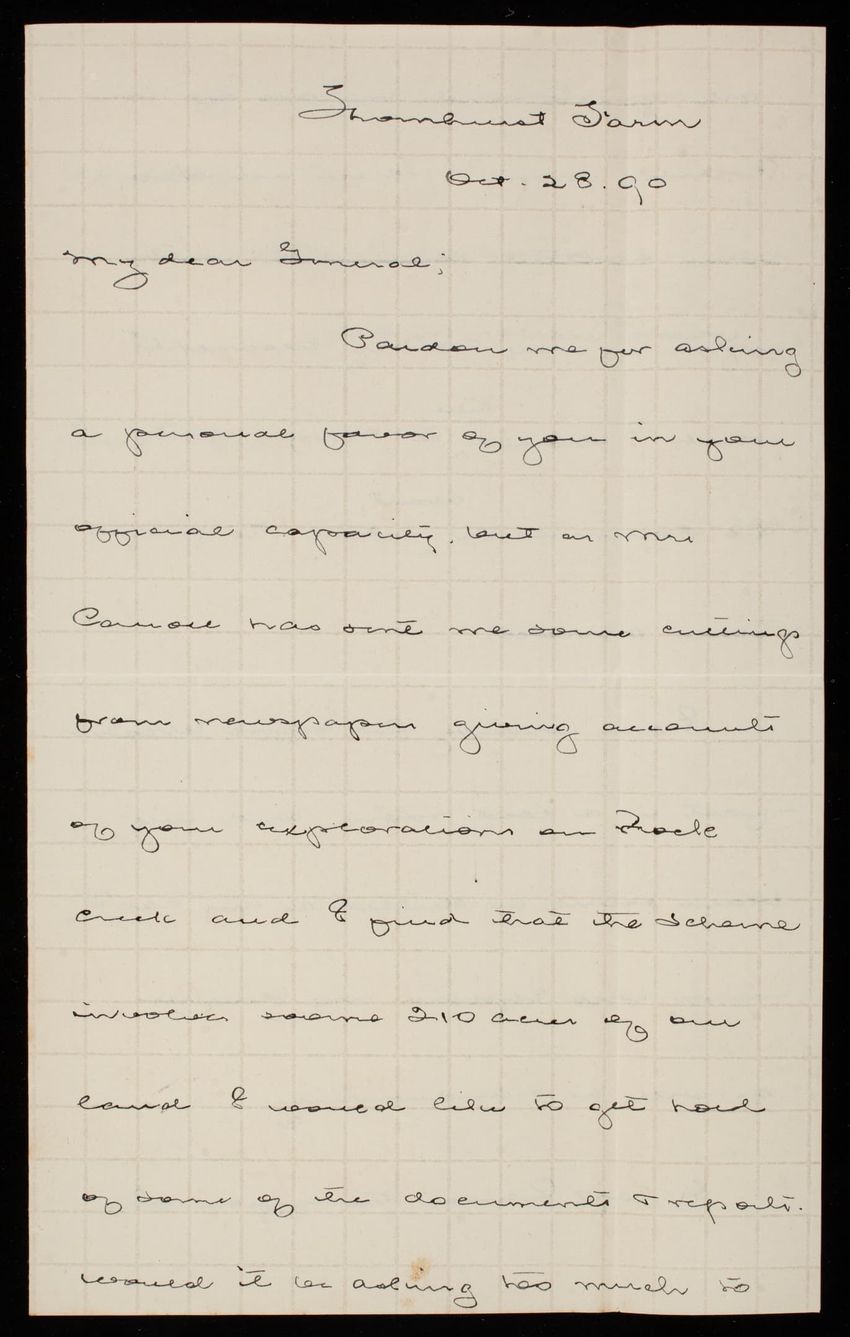 Thornhurst Farm
Oct. 28. 90
My dear General;
Pardon me for asking
a personal favor of you in your
official capacity, but as Mrs
Carroll has sent me some cuttings
from newspapers giving accounts
of your explorations on Rock
Creek and I find that the scheme
involves some 210 acres of our
land I would like to get hold
of some of the documents & reports.
would it be asking too much to